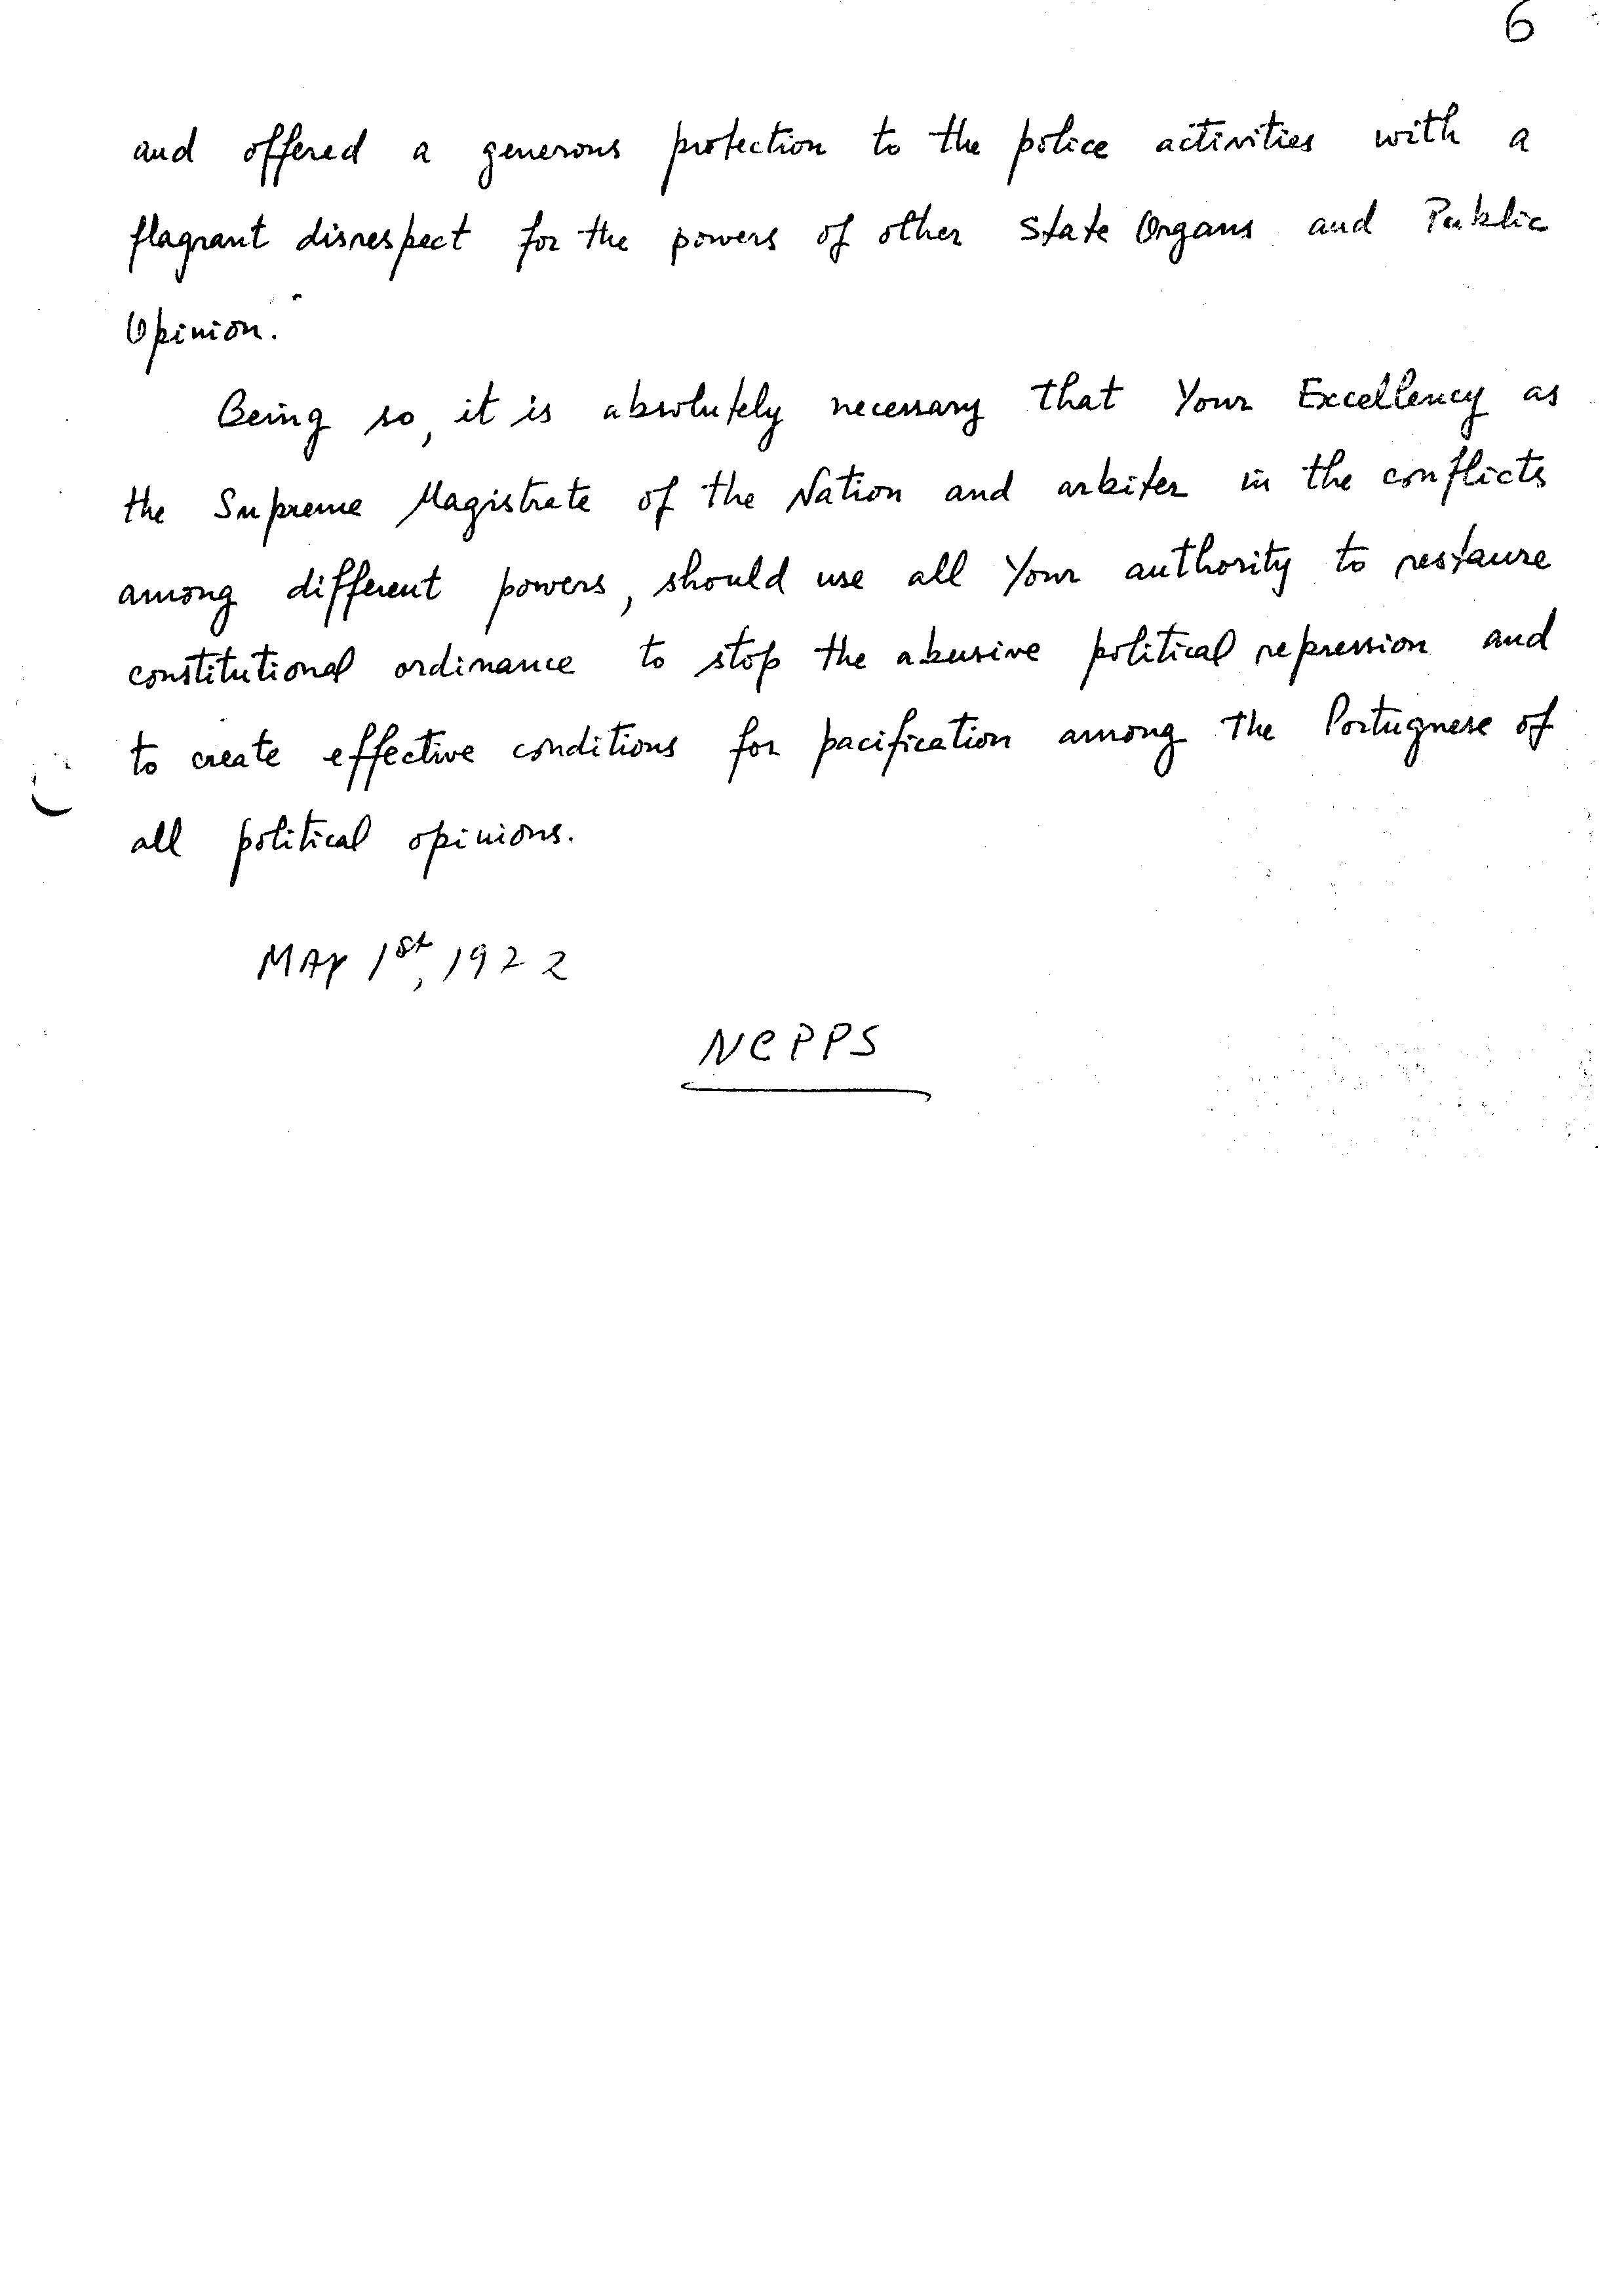 6
and offered a generous protection to the police activities with a
flagrant disrespect for the powers of other State Organs and Public
Opinion.
Being so, it is absolutely necessary that Your Excellency as
the Supreme Magistrate of the Nation and arbiter in the conflicts
among different powers, should use all Your authority to restaure
constitutional ordinance to stop the abusive political repression and
to create effective conditions for pacification among the Portuguese of
all political opinions.
MAY 1st, 1972
NCPPS